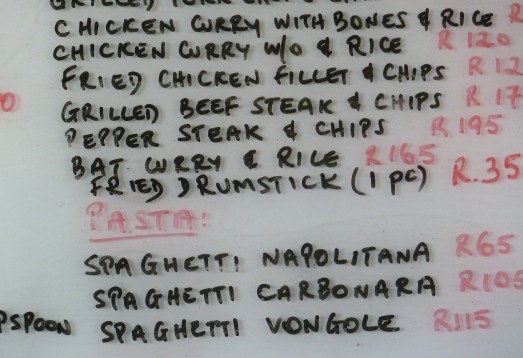 CHICKEN CURRY WITH BONES & RICE R
CHICKEN CURRY W/O & RICE R120
FRIED CHICKEN FILLET & CHIPS R12
GRILLED BEEF STEAK & CHIPS R17
PEPPER STEAK & CHIPS R195
BAT CURRY & RICE R165
FRIED DRUMSTICK (1 PC) R.35
PASTA:
SPAGHETTI NAPOLITANA R65
SPAGHETTI CARBONARA R105
PSPOON SPAGHETTI VONGOLE R115